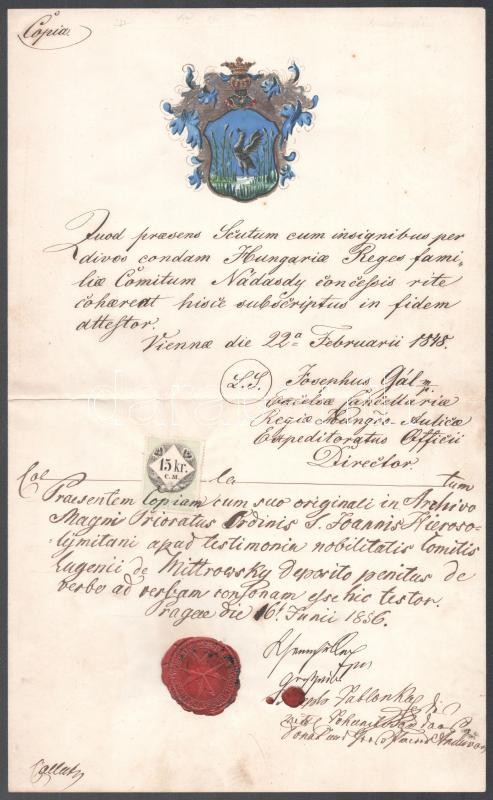 Copia
Quod præsens Scutum cum insignibus per
divos condam Hungariæ Reges fami-
liæ Comitum Nádasdy concessis rite
cohæreat hisce subscriptus in fidem
attestor.
Viennæ die 22a Februarii 1848.
L.S. Josephus Gál mp
Excelsæ Cancellariæ
Regiæ Hungco Aulicæ
Expeditoratus Officii
Director
15 kr.
C.M.
Col la tum
Praesentem Copiam cum suo originali in Archivo
Magni Prioratus Ordinis S. Joannis Hieroso-
lymitani apud testimonia nobilitatis Comitis
Eugenii de Mittrowsky deposito penitus de
verbo ad verbum consonam esse hic testor.
Pragae die 16t Junii 1856.
Joseph Jablonsky